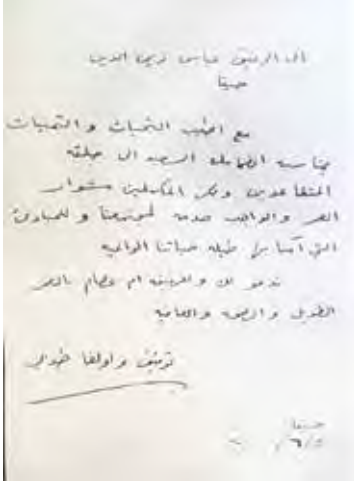 الى الرفيق عباس زين الدين
حيفا
مع اطيب التحيات والتمنيات
بمناسبة انضمامك السعيد الى حلقة
المتقاعدين ولكن المكملين مشوار
العمر والواجب خدمة لمجتمعنا وللمبادئ
التي آمنا بها طيلة حياتنا الواعية
ندعو لك وللرفيقة ام عصام بالعمر
الطويل والصحة والعافية
توفيق واولغا طوبي
حيفا